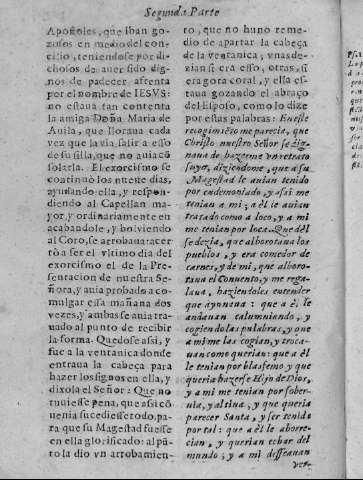 Segunda Parte
Apostoles, que iban go-
zosos en medio del con-
cilio, teniendose por di-
chosos de auer sido dig-
nos de padecer afrenta
por el nombre de IESVS:
no estaua tan contenta
la amiga Doña Maria de
Auila, que lloraua cada
vez que la via salir a esso
de su silla, que no auia cõ
solarla. El exorcismo se
continuò los nueue dias,
ayudando ella, y respon-
diendo al Capellan ma-
yor, y ordinariamente en
acabandole, y bolviendo
al Coro, se arrobaua: acer
tò a ser el vltimo dia del
exorcismo el de la Pre-
sentacion de nuestra Se-
ñora, y auia prouado a co-
mulgar essa mañana dos
vezes, y ambas se auia tra-
uado al punto de recibir
la forma. Quedose assi, y
fue a la ventanica donde
entraua la cabeça para
hazer los signos en ella, y
dixola el Señor: Que no
tuuiesse pena, que assi cõ
uenia sucediesse todo, pa-
ra que su Magestad fuesse
en ella glorificado: al pũ-
to la dio vn arrobamien-
to, que no huuo reme-
dio de apartar la cabeça
de la ventanica; vnas de-
zian si era esso, otras, si
era gota coral, y ella es-
taua gozando el abraço
del Esposo, como lo dize
por estas palabras: En este
recogimiẽto me parecia, que
Christo nuestro Señor se dig-
naua de hazerme vn retrato
suyo, diziendome, que a su
Magestad le auian tenido
por endemoniado, y assi me
tenian a mi; a èl le auian
tratado como a loco, y a mi
me tenian por loca. Que dèl
se dezia, que alborotaua los
pueblos, y era comedor de
carnes, y de mi, que alboro-
taua el Conuento, y me rega-
laua, haziendoles entender
que ayunaua: que a èl, le
andauan calumniando, y
cogiendo las palabras, y que
a mi me las cogian, y troca-
uan como querian: que a èl
le tenian por blasfemo y que
queria hazerse Hijo de Dios,
y a mi me tenian por sober-
uia, y altiua, y que queria
parecer Santa, y ser tenida
por tal: que a èl le aborre-
cian, y querian echar del
mundo, y a mi desseauan